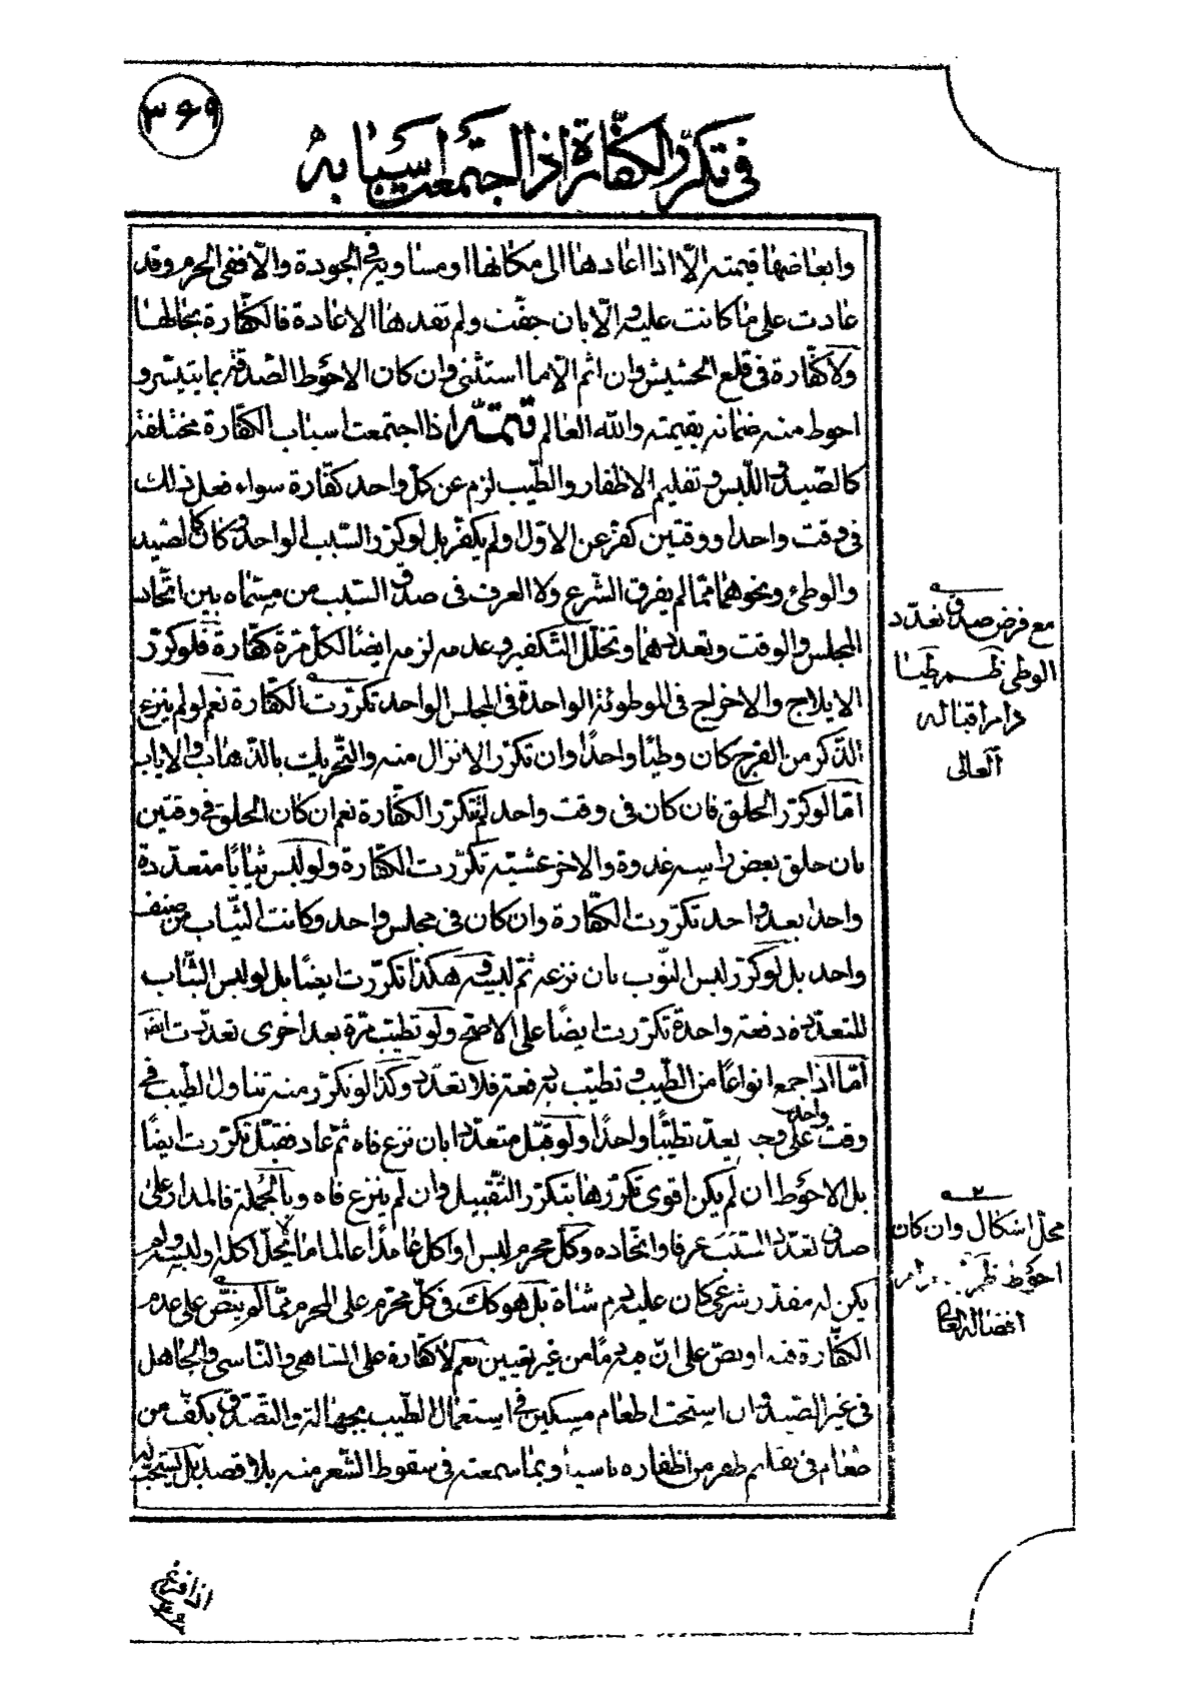 ۳۶۹
في تكرّر الكفّارة اذا اجتمعت اسبابه
وابعاضها قيمته الّا اذا اعادها الى مكانها او مساويه في الجودة والّا ففى الحرم وقد
عادت على ما كانت عليه والّا بان جفّت ولم تفدها الاعادة فالكفّارة بحالها
ولا كفّارة فى قلع الحشيش وان اثم الّا ما استثنى وان كان الاحوط الصّدقة بما يتيسّر و
احوط منه ضمانه بقيمته والله العالم تتمّة اذا اجتمعت اسباب الكفّارة مختلفة
كالصّيد واللّبس وتقليم الاظفار والطّيب لزم عن كلّ واحد كفّارة سواء فعل ذلك
فى وقت واحد او وقتين كفّر عن الاوّل او لم يكفّر بل لو كرّر السّبب الواحد وكان كالصّيد
والوطئ ونحوهما ممّا لم يفرق الشّرع ولا العرف فى صدق السّبب من مسمّاه بين اتّحاد
المجلس والوقت وتعدّدهما وتخلّل التّكفير وعدمه لزمه ايضًا لكلّ مرّة كفّارة فلو كرّر
الايلاج والاخراج فى الموطوئة الواحدة فى المجلس الواحد تكرّرت الكفّارة نعم لو لم ينزع
الذّكر من الفرج كان وطيًا واحدًا وان تكرّر الانزال منه والتّحريك بالذّهاب والاياب
امّا لو كرّر الحلق فان كان فى وقت واحد لم تتكرّر الكفّارة نعم ان كان الحلق فى وقتين
بان حلق بعض راسه غدوة والاخر عشيّة تكرّرت الكفّارة ولو لبس ثيابًا متعدّدة
واحدًا بعد واحد تكرّرت الكفّارة وان كان فى مجلس واحد وكانت الثّياب من صنف
واحد بل لو كرّر لبس الثّوب بان نزعه ثمّ لبسه وهكذا تكرّرت ايضًا بل لو لبس الثّياب
المتعدّدة دفعة واحدة تكرّرت ايضًا على الاصحّ ولو تطيّب مرّة بعد اخرى تعدّدت ايضًا
امّا اذا جمع انواعًا من الطّيب وتطيّب به دفعة فلا تعدّد وكذا لو تكرّر منه تناول الطّيب فى
وقت واحد على وجه يعدّ تطيّبًا واحدًا ولو قبّل متعدّدا بان نزع فاه ثمّ عاد فقبّل تكرّرت ايضًا
بل الاحوط ان لم يكن اقوى تكرّرها بتكرّر التّقبيل وان لم ينزع فاه وبالجملة فالمدار على
صدق تعدّد السّبب عرفا واتّحاده وكلّ محرم لبس او اكل عامدًا عالما ما لا يحلّ اكله او لبسه ولم
يكن له مقدّر شرعىّ كان عليه دم شاة بل هو كك فى كلّ محرّم على المحرم ممّا لم ينصّ على عدم
الكفّارة فيه او نصّ على انّ فيه دمًا من غير تعيين نعم لا كفّارة على السّاهى والنّاسى والجاهل
فى غير الصّيد وان استحبّ اطعام مسكين فى استعمال الطّيب بجهالة والتّصدّق بكفّ من
طعام فى تقليم ظفر من اظفاره ناسيا وبما سمعته فى سقوط الشّعر منه بلا قصد بل يستحبّ له
مع فرض صدق تعدّد
الوطى
دام اقباله
العالى
۲
محلّ اشكال وان كان
احوط